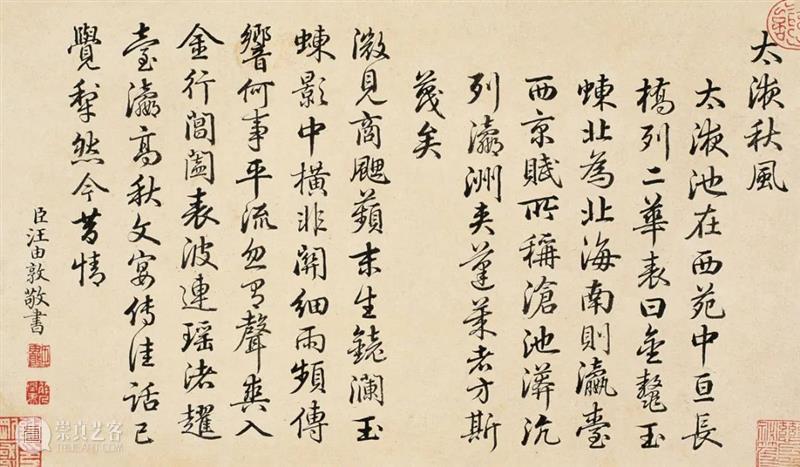 太液秋風
太液池在西苑中亘長
橋列二華表曰金鰲玉
蝀北為北海南則瀛臺
西京賦所稱滄池漭沆
列瀛洲夾蓬萊者方斯
蔑矣
微見商飇蘋末生鏡瀾玉
蝀影中橫非關細雨頻傳
響何事平流忽有聲爽入
金行閶闔表波連瑤渚趯
臺瀛高秋文宴傳佳話已
覺犁然今昔情
臣汪由敦敬書
崇真艺客